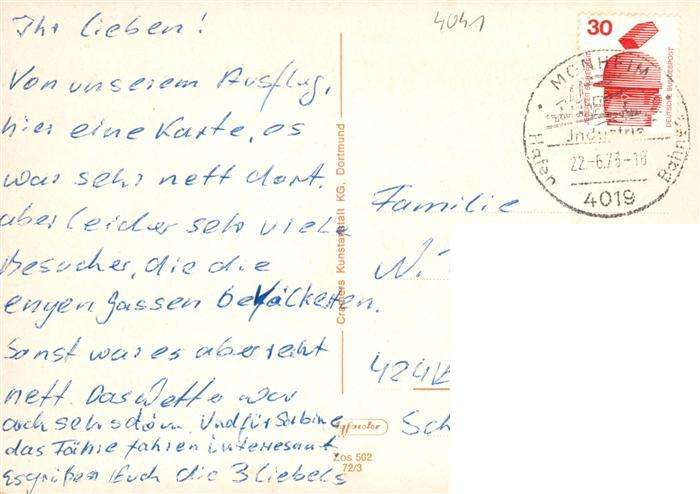 4041
Ihr lieben!
Von unserem Ausflug,
hier eine Karte, es
war sehr nett dort.
aber leider sehr viele
Besucher, die die
engen Gassen bevölkerten.
Sonst war es aber recht
nett. Das Wetter war
auch sehr schön. Und für Sabine
das Fähre fahren interessant
Es grüßen Euch die 3 Liebels
Cramers Kunstanstalt KG, Dortmund
Zos 502
72/3
30
DEUTSCHE BUNDESPOST
MONHEIM
Industrie
Hafen
Bahnen
22.-6.73-18
4019
Familie
N.
424
Sch